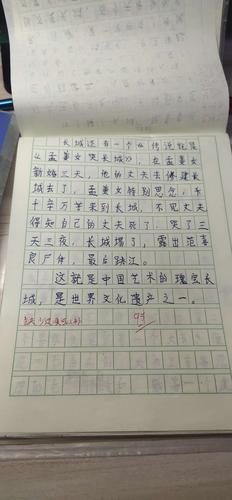 长城还有一个传说就是
《孟姜女哭长城》，在孟姜女
新婚三天，他的丈夫去修建长
城去了，孟姜女特别思念，千
辛万苦来到长城，不见丈夫
得知自己的丈夫死了，哭了三
天三夜，长城塌了，露出范喜
良尸体，最后跳江。
这就是中国艺术的瑰宝长
城，是世界文化遗产之一。
95